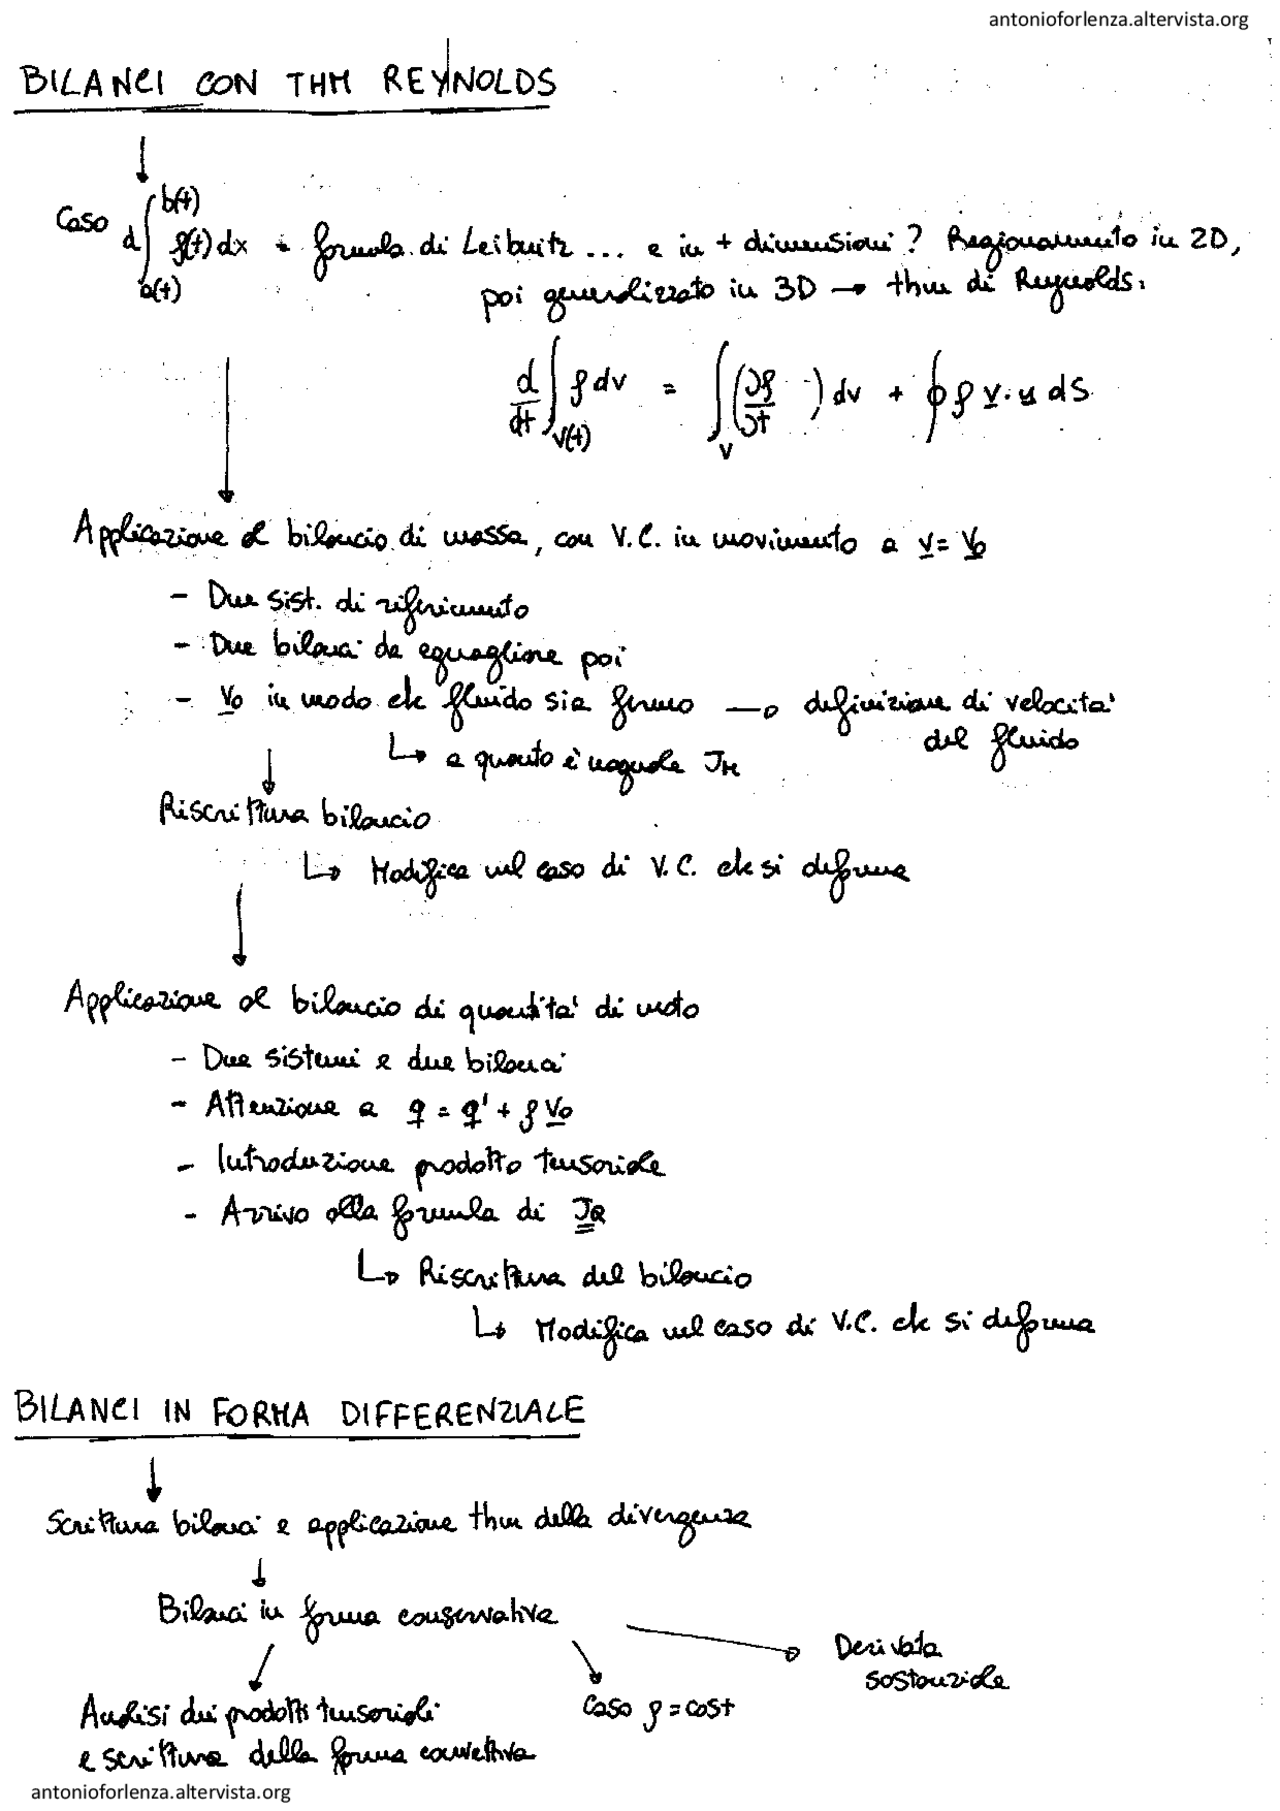 antonioforlenza.altervista.org
BILANCI CON THM REYNOLDS
↓
Caso d∫_{a(t)}^{b(t)} f(t) dx → formula di Leibnitz ... e in + dimensioni? Ragionamento in 2D,
poi generalizzato in 3D → thm di Reynolds:
d/dt ∫_{V(t)} ρ dv = ∫_V (∂ρ/∂t) dv + ∮ ρ v·n dS
↓
Applicazione al bilancio di massa, con V.C. in movimento a v = v0
- Due sist. di riferimento
- Due bilanci da eguagliare poi
- v0 in modo che fluido sia fermo → definizione di velocita'
del fluido
↳ a quanto è uguale JM
↓
Riscrittura bilancio
↳ Modifica nel caso di V.C. che si deforma
↓
Applicazione al bilancio di quantita' di moto
- Due sistemi e due bilanci
- Attenzione a q = q' + ρ v0
- Introduzione prodotto tensoriale
- Arrivo alla formula di JQ
↳ Riscrittura del bilancio
↳ Modifica nel caso di V.C. che si deforma
BILANCI IN FORMA DIFFERENZIALE
↓
Scrittura bilanci e applicazione thm della divergenza
↓
Bilanci in forma conservativa
Derivata
sostanziale
Analisi dei prodotti tensoriali
caso ρ = cost
e scrittura della forma convettiva
antonioforlenza.altervista.org